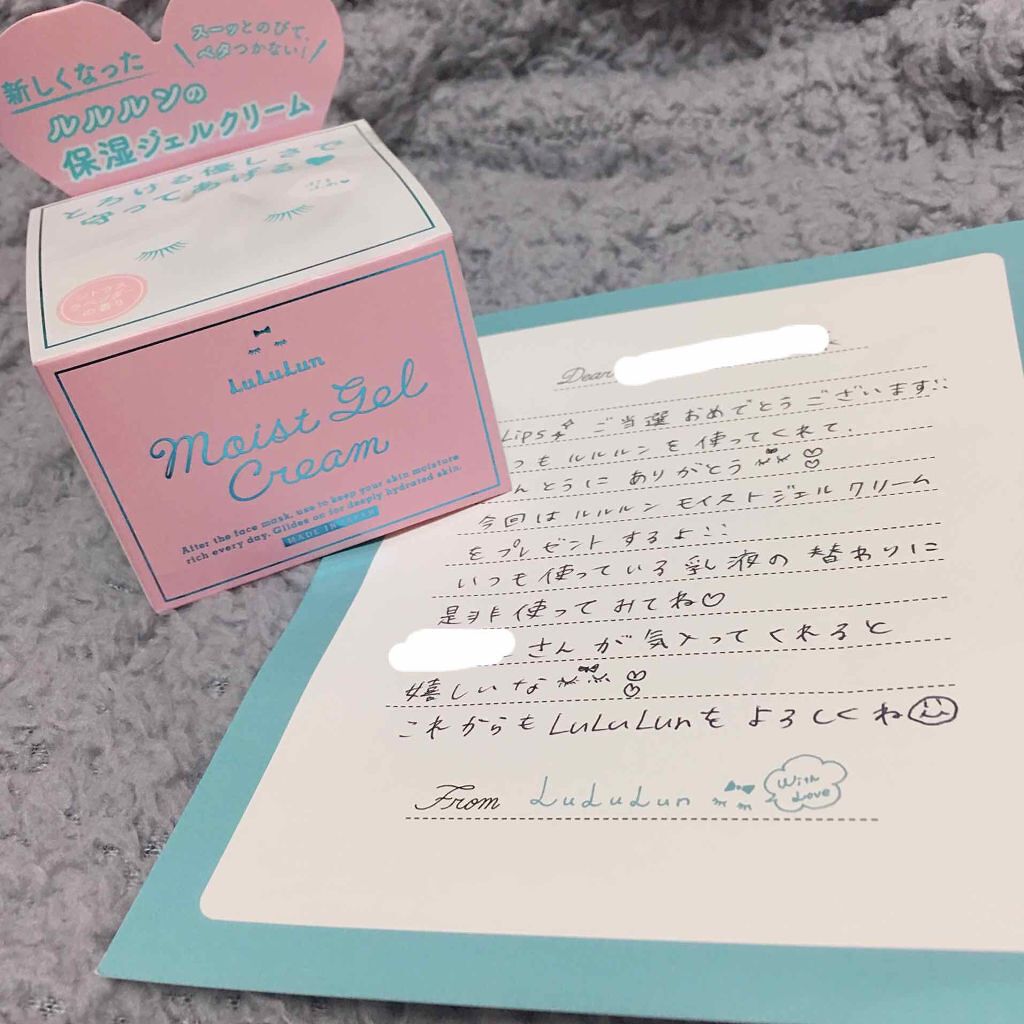 スーッとのびて、
ベタつかない！
新しくなった
ルルルンの
保湿ジェルクリーム
とろける優しさで
守ってあげる
の香り
LuLuLun
Moist Gel
Cream
After the face mask, use to keep your skin moisture
rich every day. Glides on for deeply hydrated skin.
MADE IN JAPAN
Dear
Lips ご当選おめでとうございます!!
つもルルルンを使ってくれて、
んとうにありがとう
今回はルルルンモイストジェルクリーム
をプレゼントするよ!!
いつも使っている乳液の替わりに
是非使ってみてね♡
さんが気入ってくれると
嬉しいな
これからもLuLuLunをよろしくね
From LuLuLun
With
Love